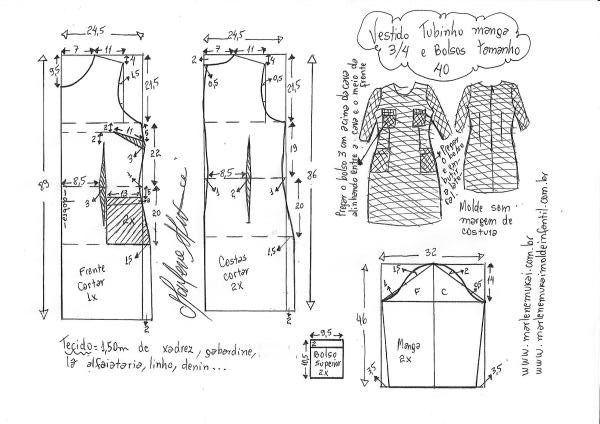 Vestido Tubinho manga
3/4 e Bolsos tamanho
40
24,5
7
11
4
9,5
1,5
21,5
2
11
5
2
3
22
89
8,5
13
5
3
2x
20
1,5
Frente
Cortar
1x
2
24,5
7
11
2
4
0,5
0,5
21,5
19
86
8,5
1
1
3
20
1,5
Costas
cortar
2x
2
Pregar o bolso 3 cm acima da cava
alinhando entre a cava e o meio da
frente
Pregar
o bolso
Molde sem
margem de
costura
32
1,5
2
14
1
0,5
F
C
46
Manga
2x
3,5
3,5
9,5
2
10,5
Bolso
superior
2x
Tecido = 1,50m de xadrez, gabardine,
lã alfaiataria, linho, denin...
www.marlenemukai.com.br
www.marlenemukaimoldeinfantil.com.br